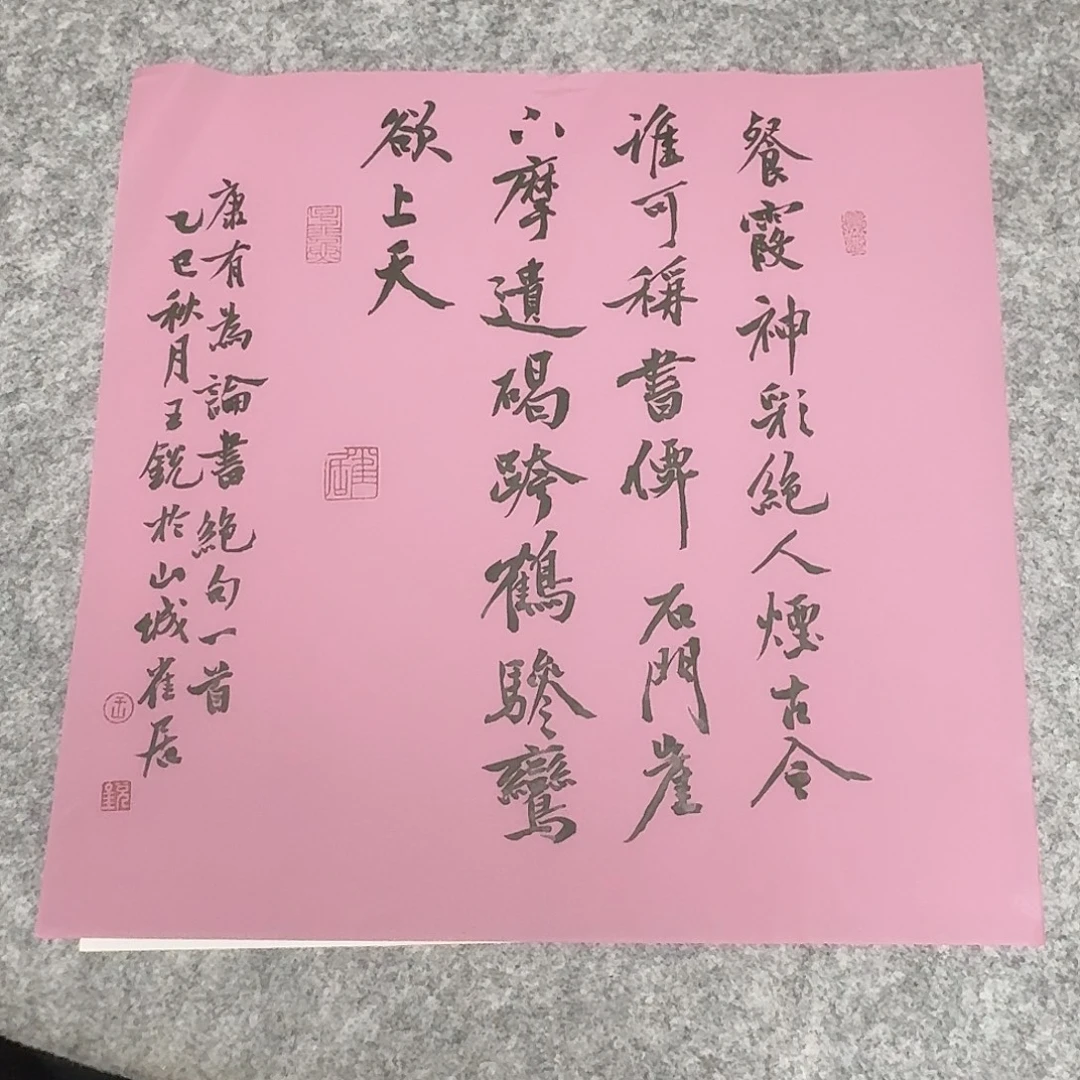 餐霞神彩絶人煙古今
誰可稱書僊石門崖
下摩遺碣跨鶴驂鸞
欲上天
康有為論書絶句一首
乙巳秋月王鋭於山城崔居